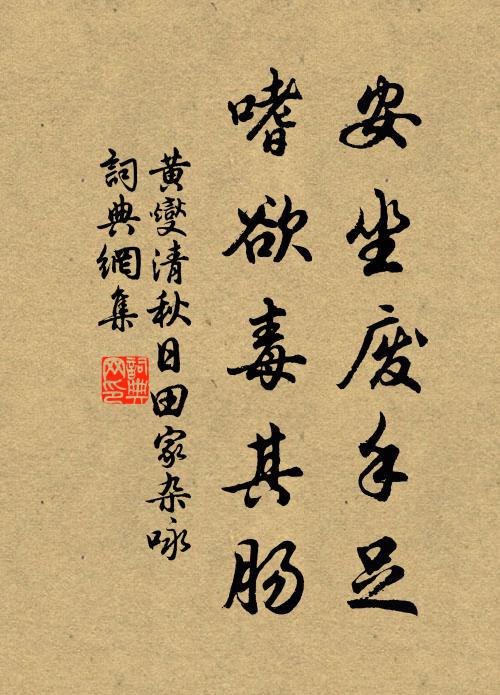 安坐废手足
嗜欲毒其肠
黄燮清秋日田家杂咏
詞典網集
詞典
网印